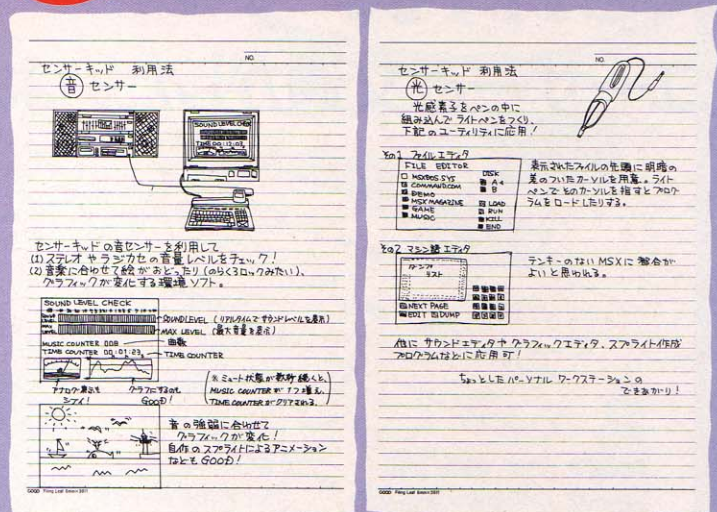 NO.
センサーキッド 利用法
音 センサー
SOUND LEVEL CHECK
TIME 00:12:03
センサーキッドの音センサーを利用して
(1) ステレオやラジカセの音量レベルをチェック!
(2) 音楽に合わせて絵がおどったり(のらくろロックみたい)、
グラフィックが変化する環境ソフト。
SOUND LEVEL CHECK
SOUND LEVEL (リアルタイムでサウンドレベルを表示)
MAX LEVEL (最大音量を表示)
MUSIC COUNTER 008 曲数
TIME COUNTER 00:01:23 TIME COUNTER
アナログ表示も
シブイ!
グラフにするのも
GOOD!
※ミュート状態が数秒続くと、
MUSIC COUNTERが1つ増え、
TIME COUNTERがクリアされる。
音の強弱に合わせて
グラフィックが変化!
自作のスプライトによるアニメーション
などもGOOD!
NO.
センサーキッド 利用法
光 センサー
光感素子をペンの中に
組み込んでライトペンをつくり、
下記のユーティリティに応用!
その1 ファイルエディタ
FILE EDITOR
DISK
MSXDOS.SYS
COMMAND.COM
DEMO
MSX MAGAZINE
GAME
MUSIC
A
B
LOAD
RUN
KILL
END
表示されたファイルの先頭に明暗の
差のついたカーソルを用意。ライト
ペンでそのカーソルを指すとプログ
ラムをロードしたりする。
その2 マシン語エディタ
ダンプ
リスト
NEXT PAGE
EDIT DUMP
テンキーのないMSXに都合が
よいと思われる。
他にサウンドエディタやグラフィックエディタ、スプライト作成
プログラムなどに応用可!
ちょっとしたパーソナルワークステーションの
できあがり!